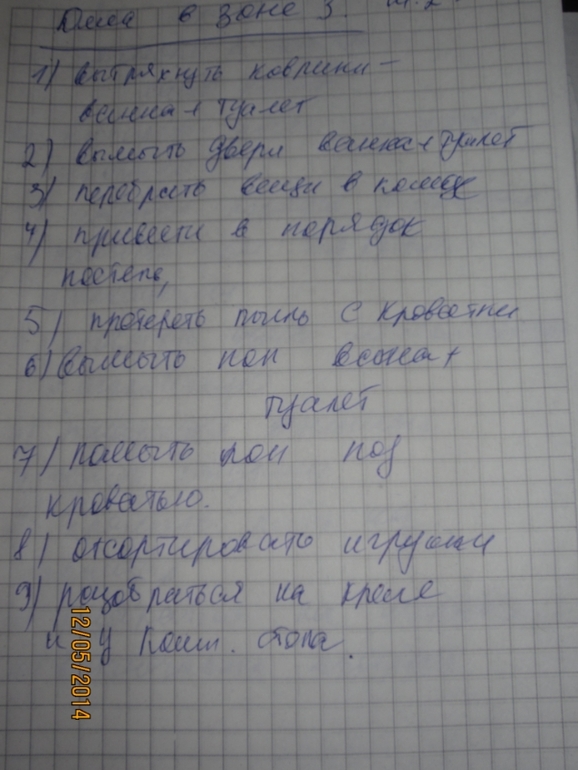 в зоне 3.
1) вытряхнуть коврики –
ванна + туалет
2) вымыть двери ванна + туалет
3) перебрать вещи в комоде
4) привести в порядок
постель,
5) протереть пыль с кроватки
6) вымыть пол ванна +
туалет
7) помыть пол под
кроватью.
8) отсортировать игрушки
9) разобраться на кресле
и у комп. стола.
12/05/2014